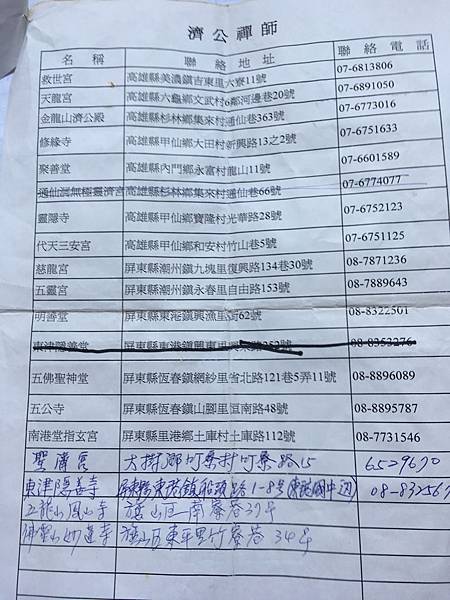 濟公禪師
名稱 聯絡地址 聯絡電話
救世宮 高雄縣美濃鎮吉東里六寮11號 07-6813806
天龍宮 高雄縣六龜鄉文武村6鄰河邊巷20號 07-6891050
金龍山濟公殿 高雄縣杉林鄉集來村通仙巷363號 07-6773016
修緣寺 高雄縣甲仙鄉大田村新興路13之2號 07-6751633
聚善堂 高雄縣內門鄉永富村龍山11號 07-6601589
通仙洞無極靈濟宮 高雄縣杉林鄉集來村通仙巷66號 07-6774077
靈隱寺 高雄縣甲仙鄉寶隆村光華路28號 07-6752123
代天三安宮 高雄縣甲仙鄉和安村竹山巷5號 07-6751125
慈龍宮 屏東縣潮州鎮九塊里復興路134巷30號 08-7871236
五靈宮 屏東縣潮州鎮永春里自由路153號 08-7889643
明善堂 屏東縣東港鎮興漁里街62號 08-8322501
東津隱善堂 屏東縣東港鎮興東里興東路252號 08-8353276
五佛聖神堂 屏東縣恆春鎮網紗里省北路121巷5弄11號 08-8896089
五公寺 屏東縣恆春鎮山腳里恆南路48號 08-8895787
南港堂指玄宮 屏東縣里港鄉土庫村土庫路112號 08-7731546
聖濟宮 大樹鄉竹寮村竹寮路15 6529670
東津隱善寺 屏東縣東港鎮船頭路1-8號(東港國中边) 08-832567
山鳳山寺 旗山區南寮巷37号
佛聖山妙蓮寺 旗山区東平里竹寮巷34号